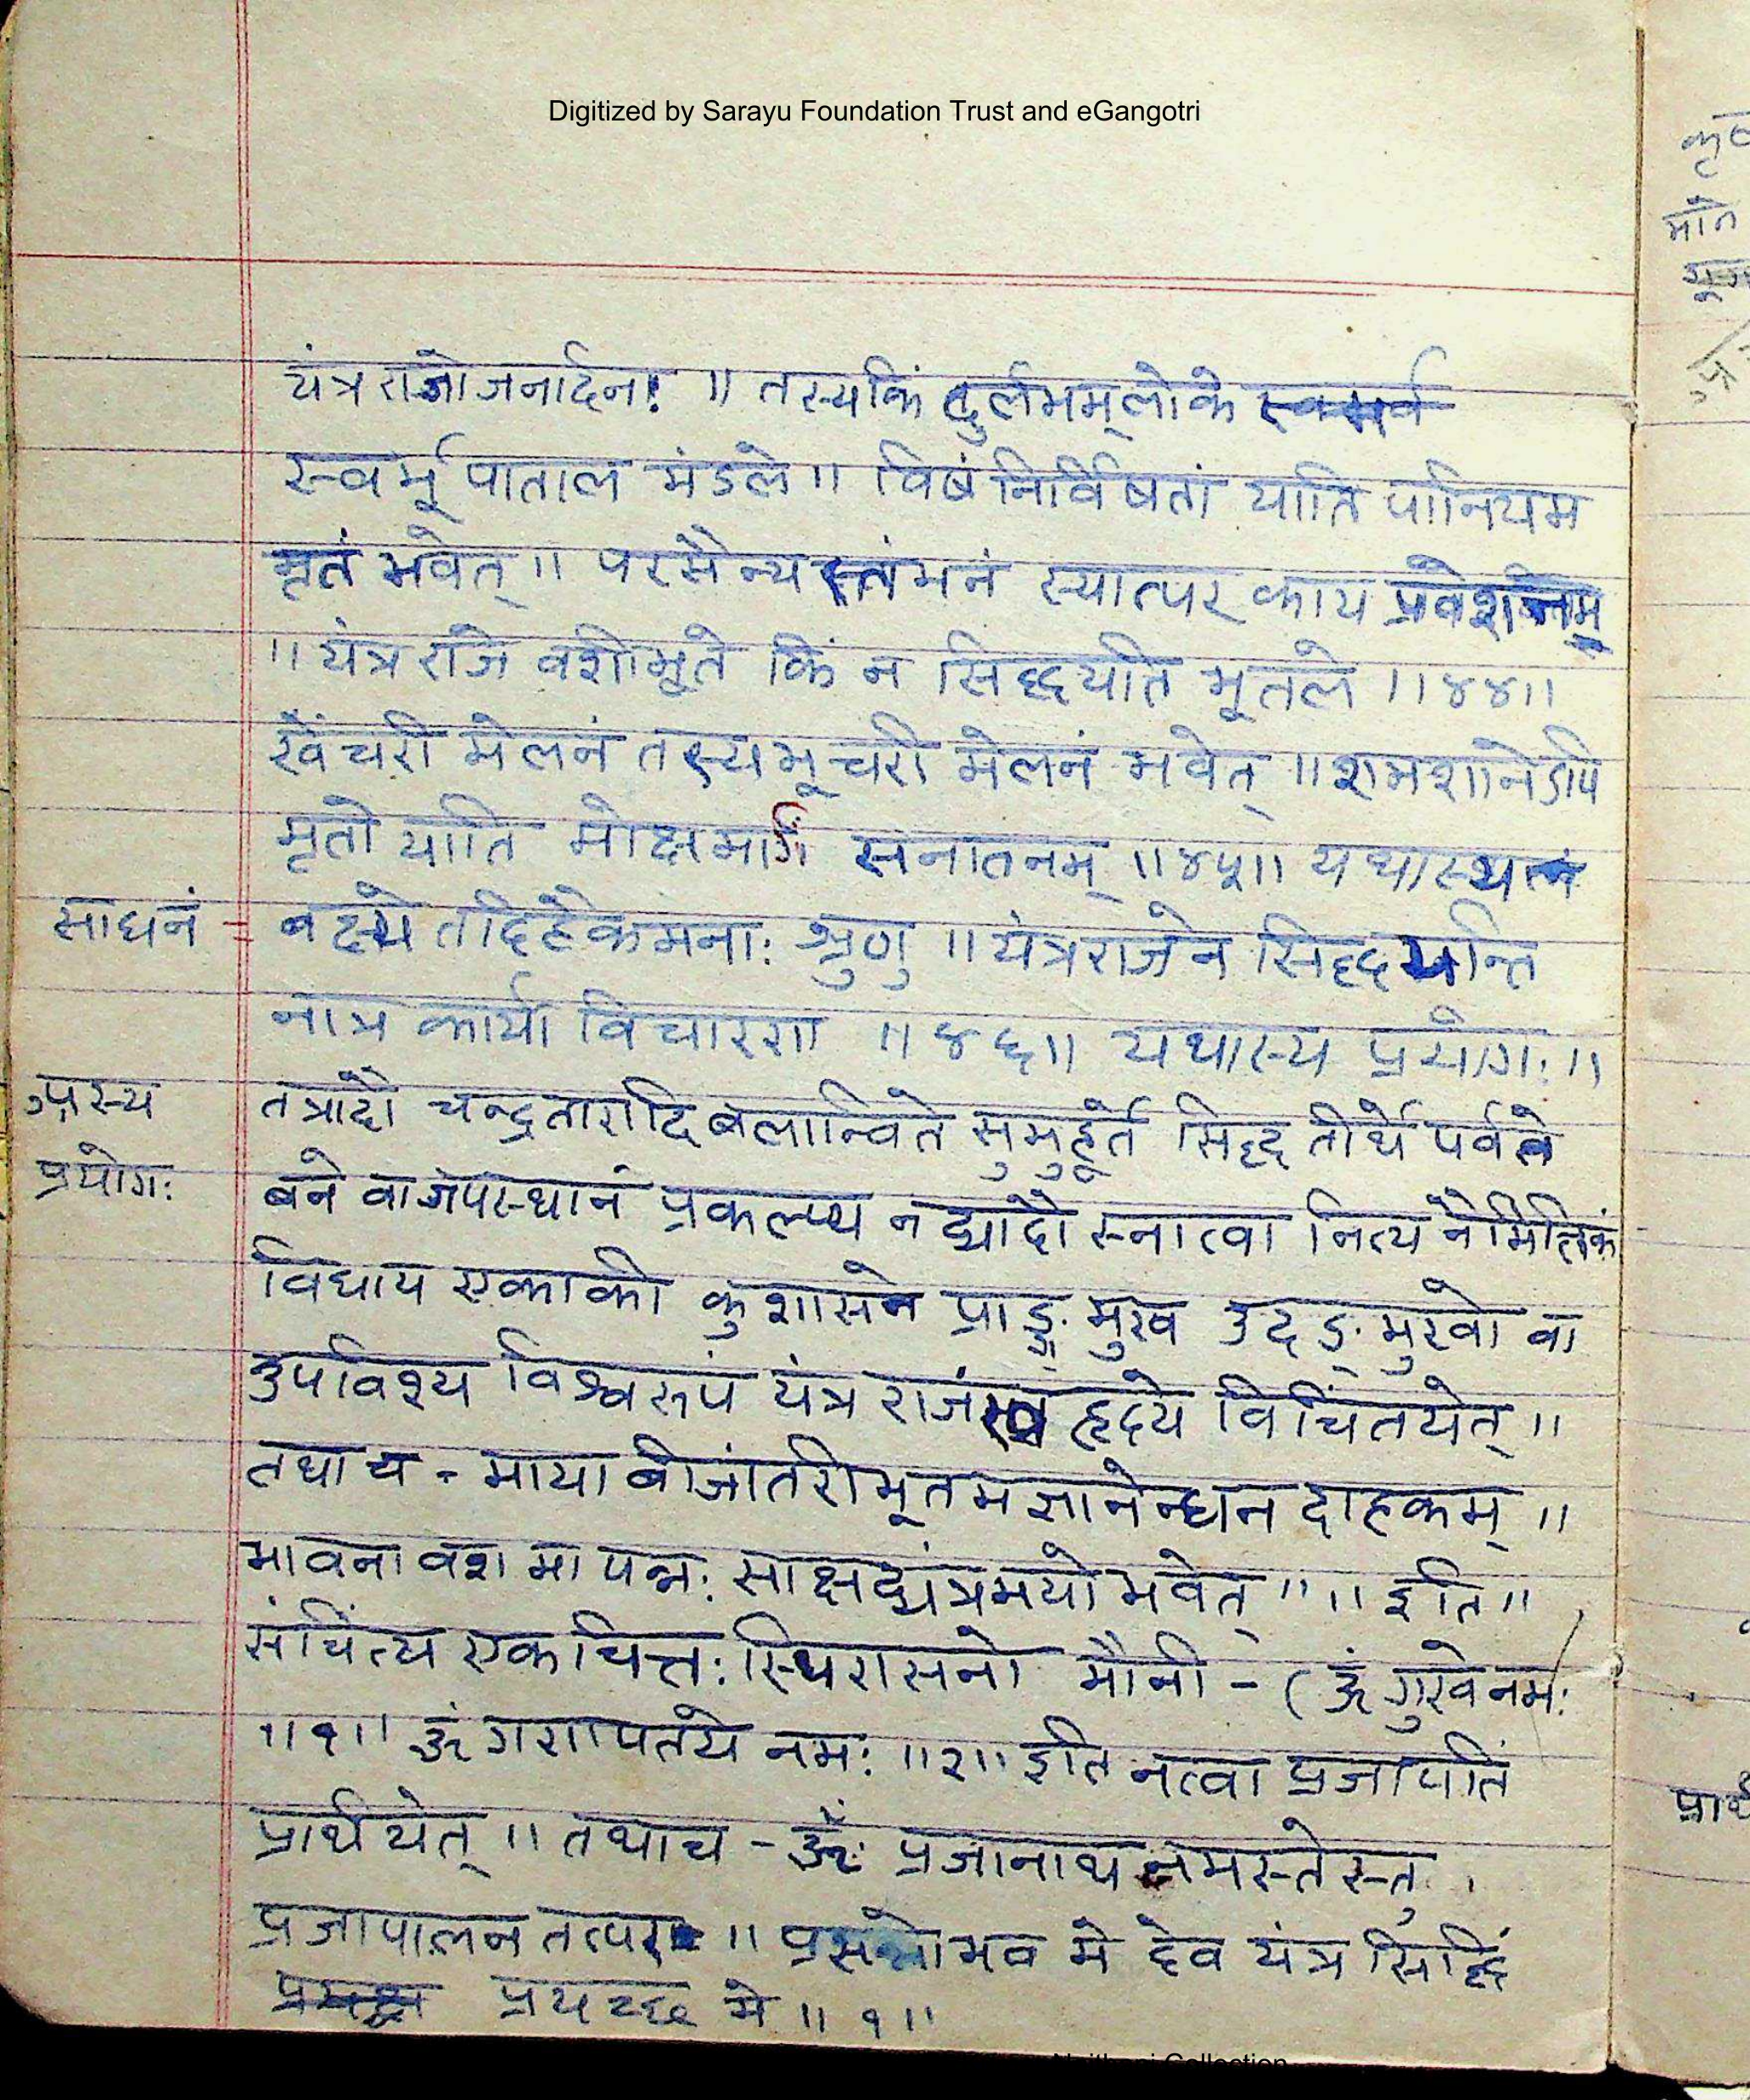 Digitized by Sarayu Foundation Trust and eGangotri
यंत्र राजो जनार्दन! ॥ तस्यकिं दुर्लभम् लोके
स्वर्भू पाताल मंडले ॥ विषं निर्विषतां याति पानियम
मृतं भवेत् ॥ परसैन्य स्तंभनं स्यात्पर काय प्रवेशनम्
॥ यंत्र राजे वशीभूते किं न सिद्धयति भूतले ॥४४॥
खेंचरी मेलनं तस्य भूचरी मेलनं भवेत् ॥ शमशानेऽपि
मृतो याति मोक्षमार्गं सनातनम् ॥४५॥ यथास्य
साधनं - वक्ष्ये तदिहैकमनाः श्रुणु ॥ यंत्रराजेन सिद्धयन्ति
नात्र कार्या विचारणा ॥४६॥ यथास्य प्रयोगः ॥
अस्य तत्रादौ चन्द्रतारादि बलान्विते सुमुहूर्ते सिद्ध तीर्थे पर्वते
प्रयोगः बने वा जपस्थानं प्रकल्प्य नद्यादौ स्नात्वा नित्य नैमित्तिकं
विधाय एकाकी कुशासने प्राङ् मुख उदङ् मुखो वा
उपविश्य विश्वरूपं यंत्र राजं स्व हृदये विचिंतयेत् ॥
तथा च - माया बीजांतरीभूतमज्ञानेन्धन दाहकम् ॥
भावना वश मा पन्नः साक्षद्यंत्रमयो भवेत् ॥ ॥ इति ॥
संचिंत्य एकचित्तः स्थिरासनो मौनी - (ॐ गुरवे नमः
॥१॥ ॐ गणपतये नमः ॥२॥ इति नत्वा प्रजापतिं
प्रार्थयेत् ॥ तथाच - ॐ प्रजानाथ नमस्तेस्तु ।
प्रजापालन तत्पर ॥ प्रसन्नो भव मे देव यंत्र सिद्धिं
प्रयच्छ मे ॥१॥